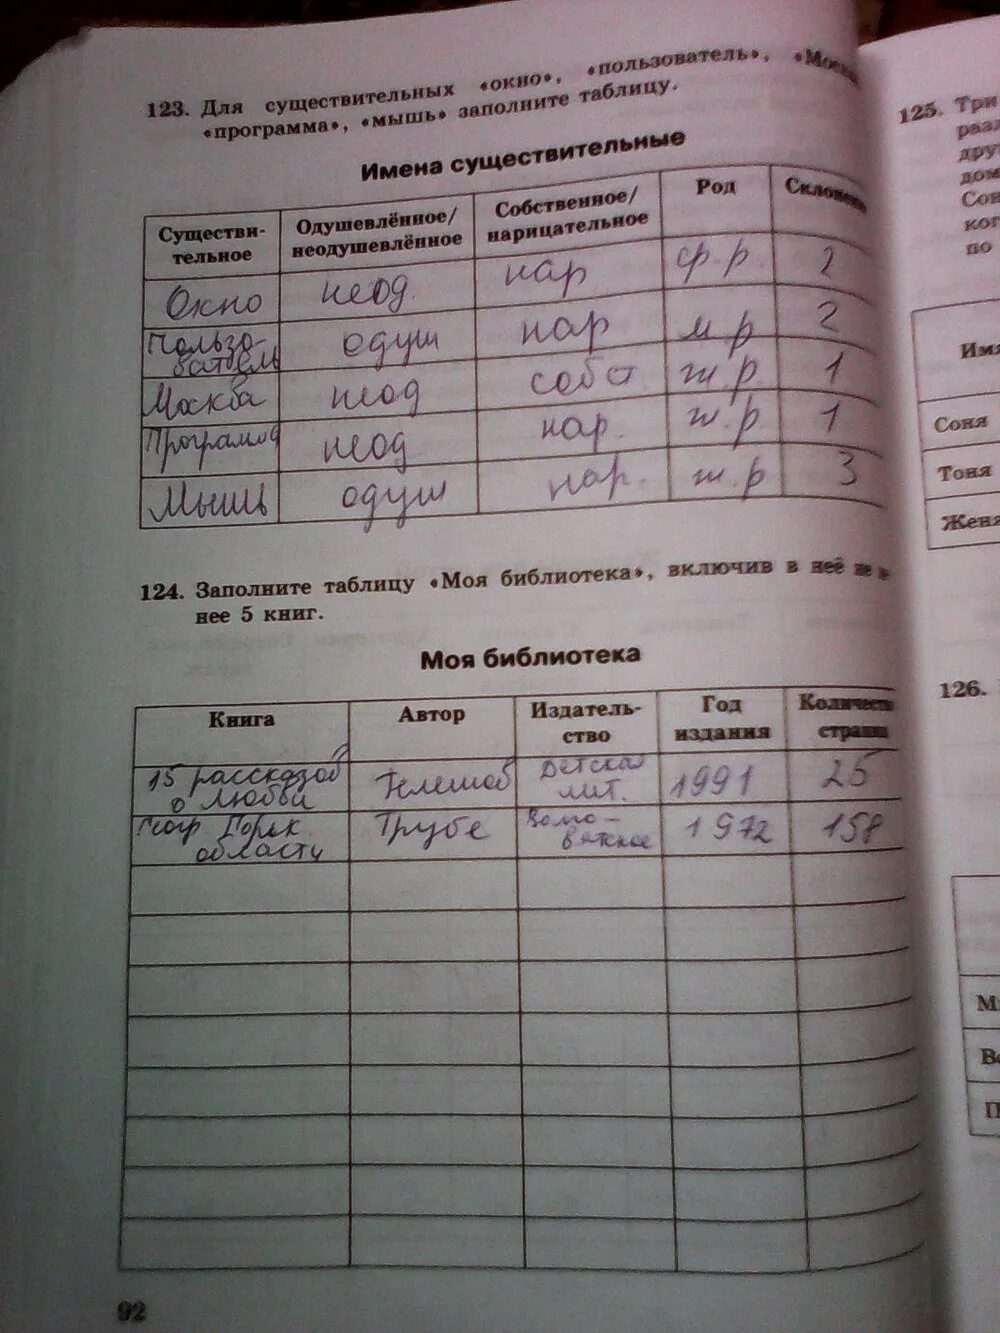 123. Для существительных «окно», «пользователь», «Москва
«программа», «мышь» заполните таблицу.
Имена существительные
Существи-
тельное
Одушевлённое/
неодушевлённое
Собственное/
нарицательное
Род
Склонение
Окно неод. нар ср. р. 2
Пользо-
ватель
одуш нар м р 2
Москва неод собст ж р. 1
Программа неод нар. ж. р 1
Мышь одуш нар. ж. р 3
124. Заполните таблицу «Моя библиотека», включив в неё не ме
нее 5 книг.
Моя библиотека
Книга
Автор
Издатель-
ство
Год
издания
Количество
страниц
15 рассказов
о любви
Телешов
Детская
лит.
1991
25
Геогр Горьк.
области
Трубе
Волго-
вятское
1972
158
92
125. Три
раз
дру
дом
Сон
ког
по
Имя
Соня
Тоня
Женя
126.
М
В
П